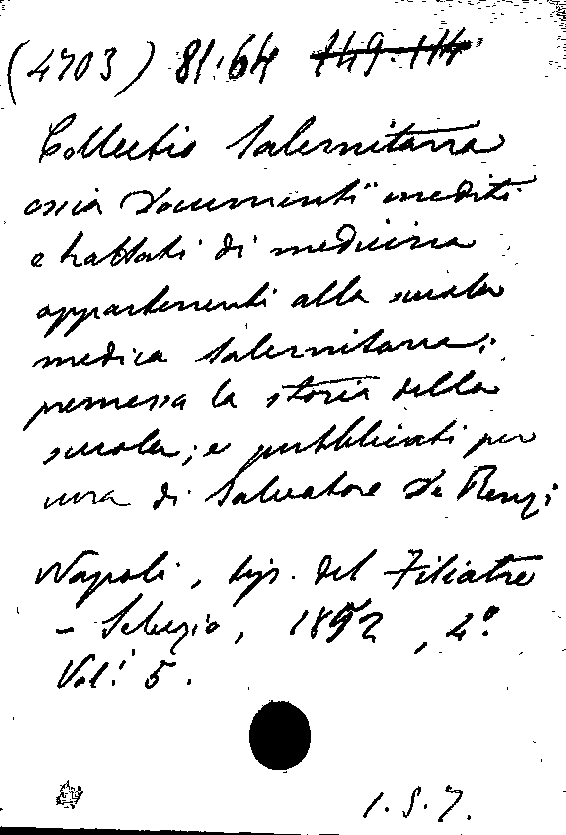 (4703) 81.64 149.114
Collectio Salernitana
ossia Documenti inediti
e trattati di medicina
appartenenti alla scuola
medica Salernitana;
premessa la storia della
scuola; e pubblicati per
cura di Salvatore De Renzi
Napoli, tip. del Filiatre
- Sebezio, 1852, 4º
Vol.i 5.
1.S.7.